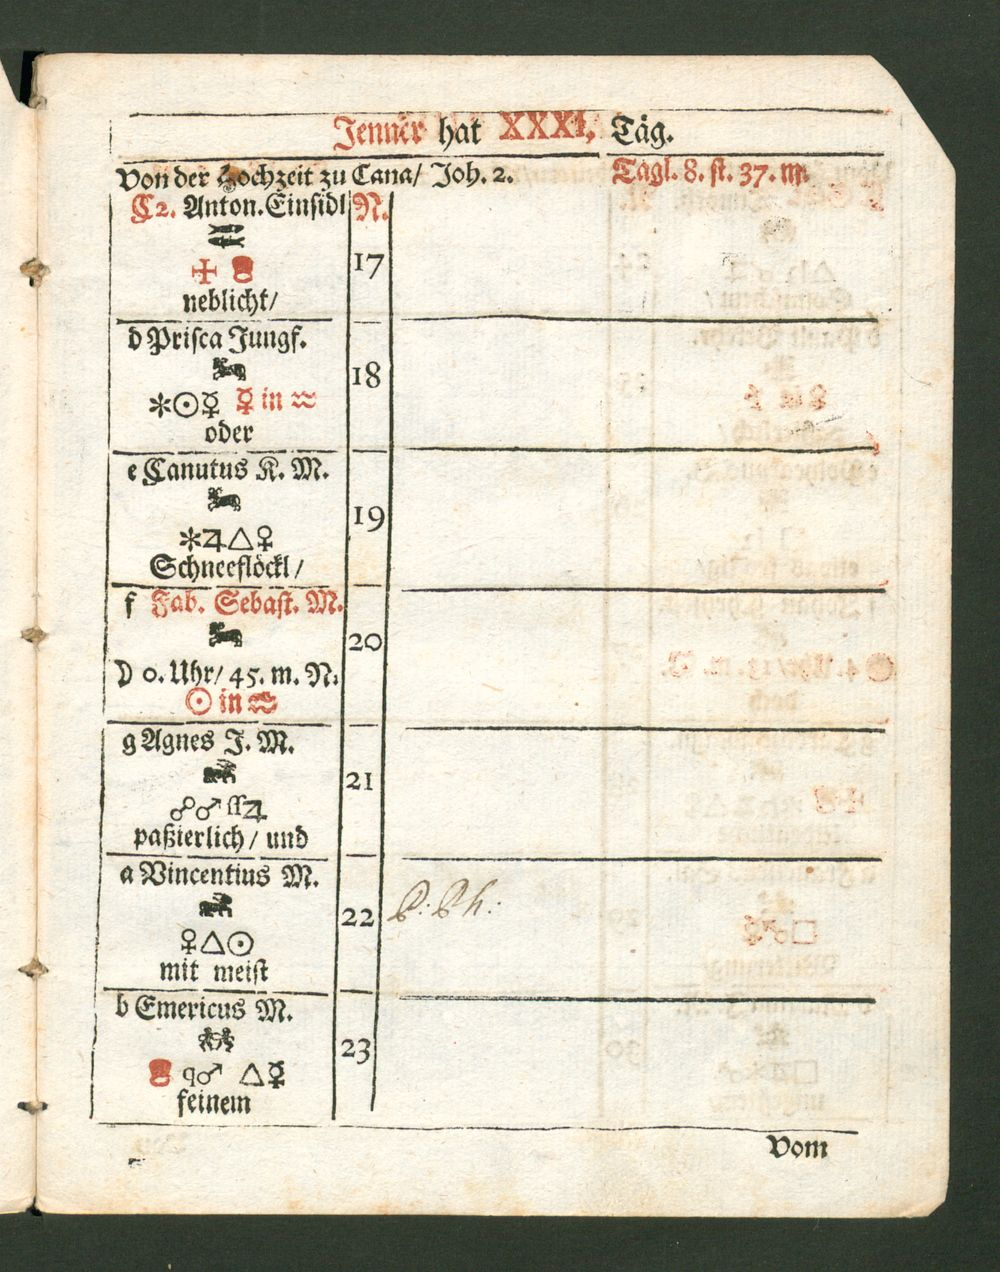 Jenner hat XXXI, Täg.
Von der Hochzeit zu Cana/ Joh. 2. Tagl. 8. st. 37. m.
C2. Anton. Einsidl N.
17
neblicht/
d Prisca Jungf.
18
✶☉☿ ☿ in ♒
oder
e Canutus K. M.
19
✶♃△♀
Schneeflöckl/
f Fab. Sebast. M.
20
☽ 0. Uhr/ 45. m. N.
☉ in ♒
g Agnes J. M.
21
☍♂ ſſ♃
paßierlich/ und
a Vincentius M.
22
♀△☉
mit meist
b Emericus M.
23
q♂ △☿
feinem
Vom